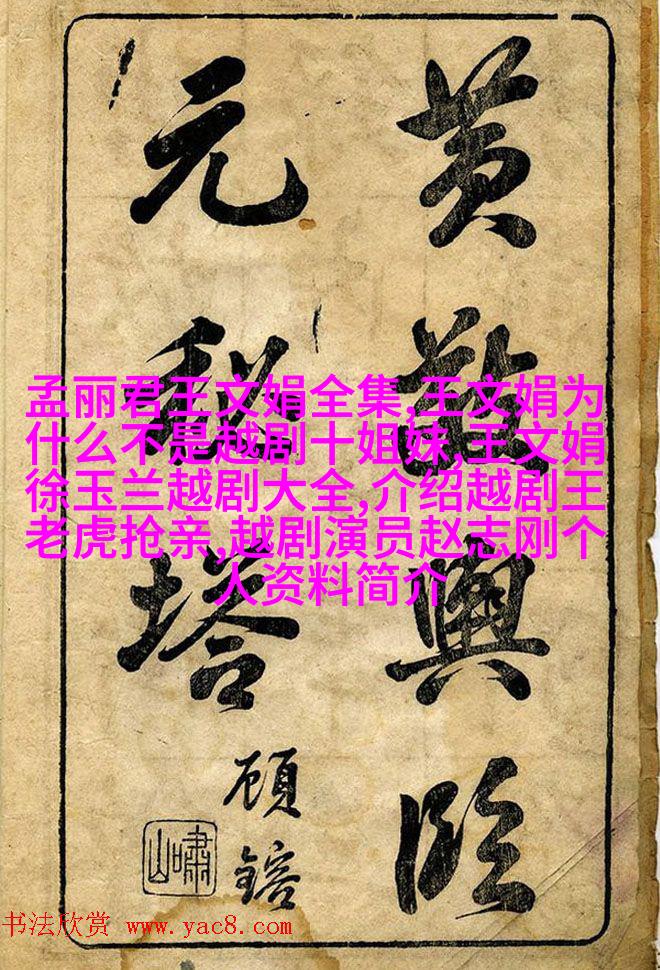 黄敬輿臨
元秘塔
顧鎔
嘯山
孟丽君王文娟全集,王文娟为
什么不是越剧十姐妹,王文娟
徐玉兰越剧大全,介绍越剧王
老虎抢亲,越剧演员赵志刚个
人资料简介
书法欣赏 www.yac8.com